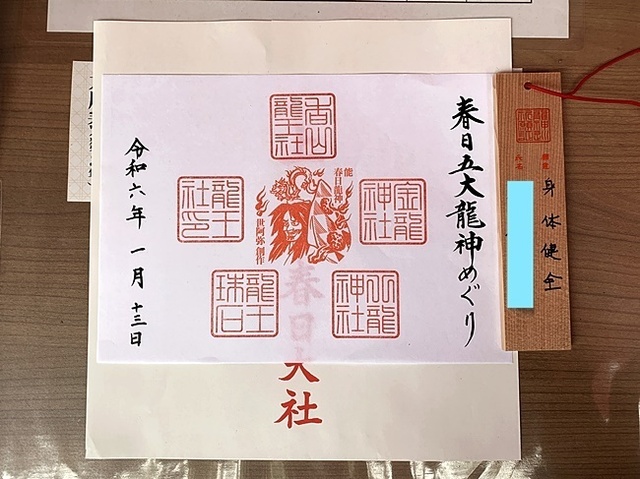 春日五大龍神めぐり
香山
龍王社
金龍
神社
龍王
社印
龍王
珠石
八龍
神社
能
春日龍神
世阿弥創作
令和六年 一月 十三日
春日大社
身体健全